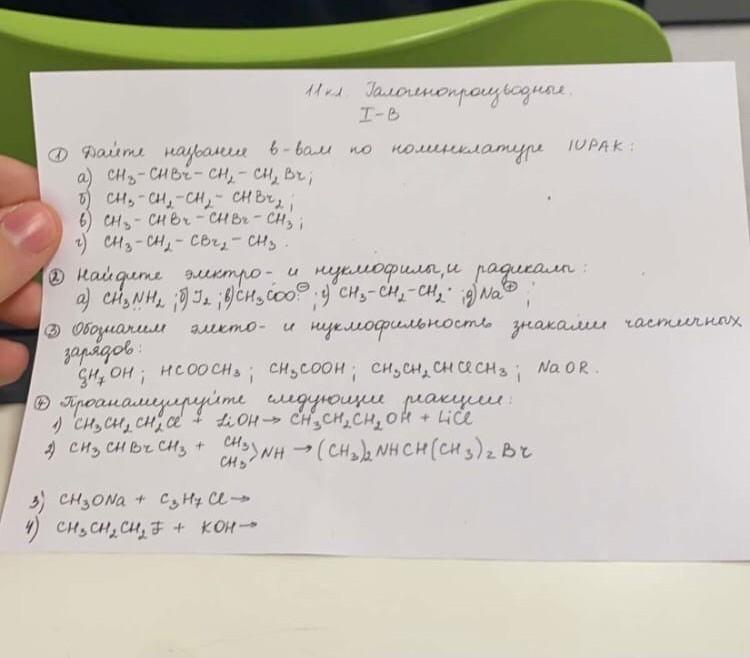 11кл. Галогенопроизводные.
I-В
① Дайте название в-вам по номенклатуре IUPAK:
а) CH₃-CHBr-CH₂-CH₂Br;
б) CH₃-CH₂-CH₂-CHBr₂;
в) CH₃-CHBr-CHBr-CH₃;
г) CH₃-CH₂-CBr₂-CH₃.
② Найдите электро- и нуклофилы, и радикалы:
а) CH₃NH₂; б) I₂; в) CH₃COO⊖; г) CH₃-CH₂-CH₂·; д) Na⊕;
③ Обозначим электо- и нуклофильность знаками частичных
зарядов:
C₃H₇OH; HCOOCH₃; CH₃COOH; CH₃CH₂CHClCH₃; NaOR.
④ Проанализируйте следующие реакции:
1) CH₃CH₂CH₂Cl + LiOH → CH₃CH₂CH₂OH + LiCl
2) CH₃CHBrCH₃ + CH₃ CH₃ >NH → (CH₃)₂NHCH(CH₃)₂Br
3) CH₃ONa + C₃H₇Cl →
4) CH₃CH₂CH₂F + KOH →